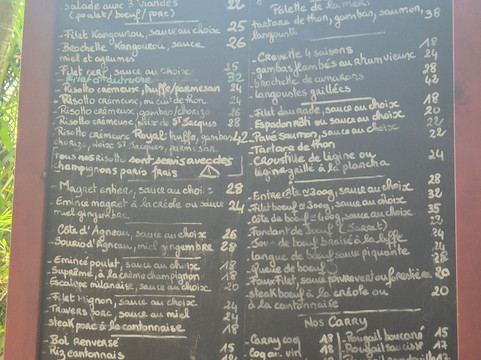 salade aux 3 viandes 22
(poulet/boeuf/porc)
- Filet Kangourou, sauce au choix 25
- Brochette Kangourou, sauce 26
miel et agrumes
- Filet cerf, sauce au choix 25
32
- Risotto crémeux, truffe/parmesan 24
- Risotto crémeux, mi cuit de thon 24
- Risotto crémeux, gambas/chorizo 26
- Risotto crémeux, noix St Jacques 28
- Risotto crémeux Royal truffe, gambas 42
chorizo, noix St Jacques, parmesan
Tous nos Risotto sont servis avec des
champignons paris frais
- Magret entier, sauce au choix 28
- Emincé magret à la créole ou sauce 24
miel gingembre
Côte d'Agneau, sauce au choix 26
- Souris d'Agneau, miel gingembre 28
- Emincé poulet, sauce au choix 18
- Suprême, à la crème champignon 18
- Escalope milanaise, sauce au choix 20
- Filet Mignon, sauce au choix 24
- Travers porc, sauce au miel 24
- steak porc à la cantonnaise 18
- Bol renversé 15
- Riz cantonnais
Palette de la mer
tartare de thon, gambas, saumon, 38
langouste
- Crevette 4 saisons 18
- gambas flambés au rhum vieux 24
- brochette de camarons 28
- langoustes grillées 42
- Filet daurade, sauce au choix 18
- Espadon rôti ou sauce au choix 20
- Pavé saumon, sauce au choix 22
- Tartare de thon 22
- Croustille de légine ou 24
légine grillé à la plancha
- Entrecôte ≃300g, sauce au choix 28
- Filet boeuf ≃300g, sauce au choix 32
- Côte de boeuf ≃400g, sauce au choix 35
- Fondant de boeuf
- Joue de boeuf braisé à la 24
- langue de boeuf sauce piquante
- Queue de boeuf 28
- Faux Filet, sauce poivre vert ou forestière 20
- steak boeuf à la créole ou 20
à la cantonnaise
Nos CARRY
- Carry coq 18
- Coq au vin 18
- Rougail boucané 15
- Rougail saucisse 17